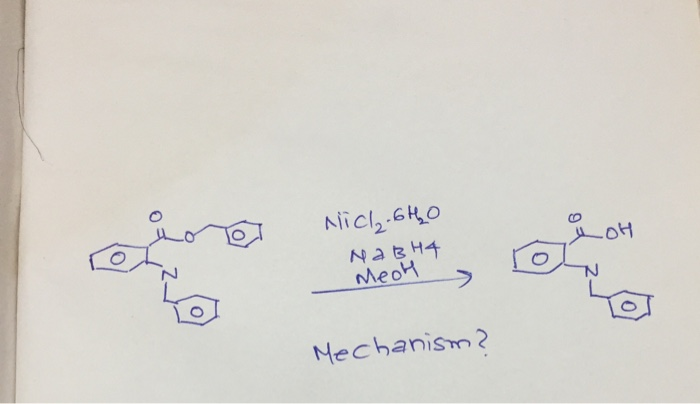 NiCl2.6H2O
O
O
NaBH4
MeOH
O
OH
N
N
Mechanism?